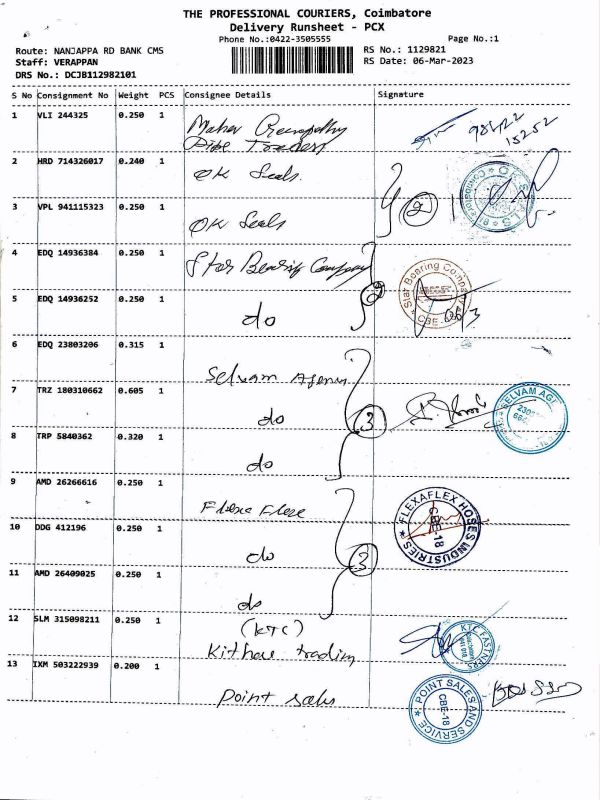 THE PROFESSIONAL COURIERS, Coimbatore
Delivery Runsheet - PCX
Phone No.:0422-3505555 Page No.:1
Route: NANJAPPA RD BANK CMS RS No.: 1129821
Staff: VERAPPAN RS Date: 06-Mar-2023
DRS No.: DCJB112982101
S No Consignment No Weight PCS Consignee Details Signature
1 VLI 244325 0.250 1
Traders
2 HRD 714326017 0.240 1 OK Seals.
2
3 VPL 941115323 0.250 1 OK Seals
4 EDQ 14936384 0.250 1 Star Bearing Company
Star Bearing Company
CBE
2
5 EDQ 14936252 0.250 1 do
6 EDQ 23803206 0.315 1 Selvam Agency
7 TRZ 180310662 0.605 1 do 3 SELVAM AGE
8 TRP 5840362 0.320 1 do
9 AMD 26266616 0.250 1 Flexa Flex
FLEXAFLEX HOSES INDUSTRIES
CBE-18
10 DDG 412196 0.250 1 do
3
11 AMD 26409025 0.250 1 do
12 SLM 315098211 0.250 1 (KTC)
trading
KTC FASTNERS
13 IXM 503222939 0.200 1 Point sales
POINT SALES AND SERVICE
CBE-18